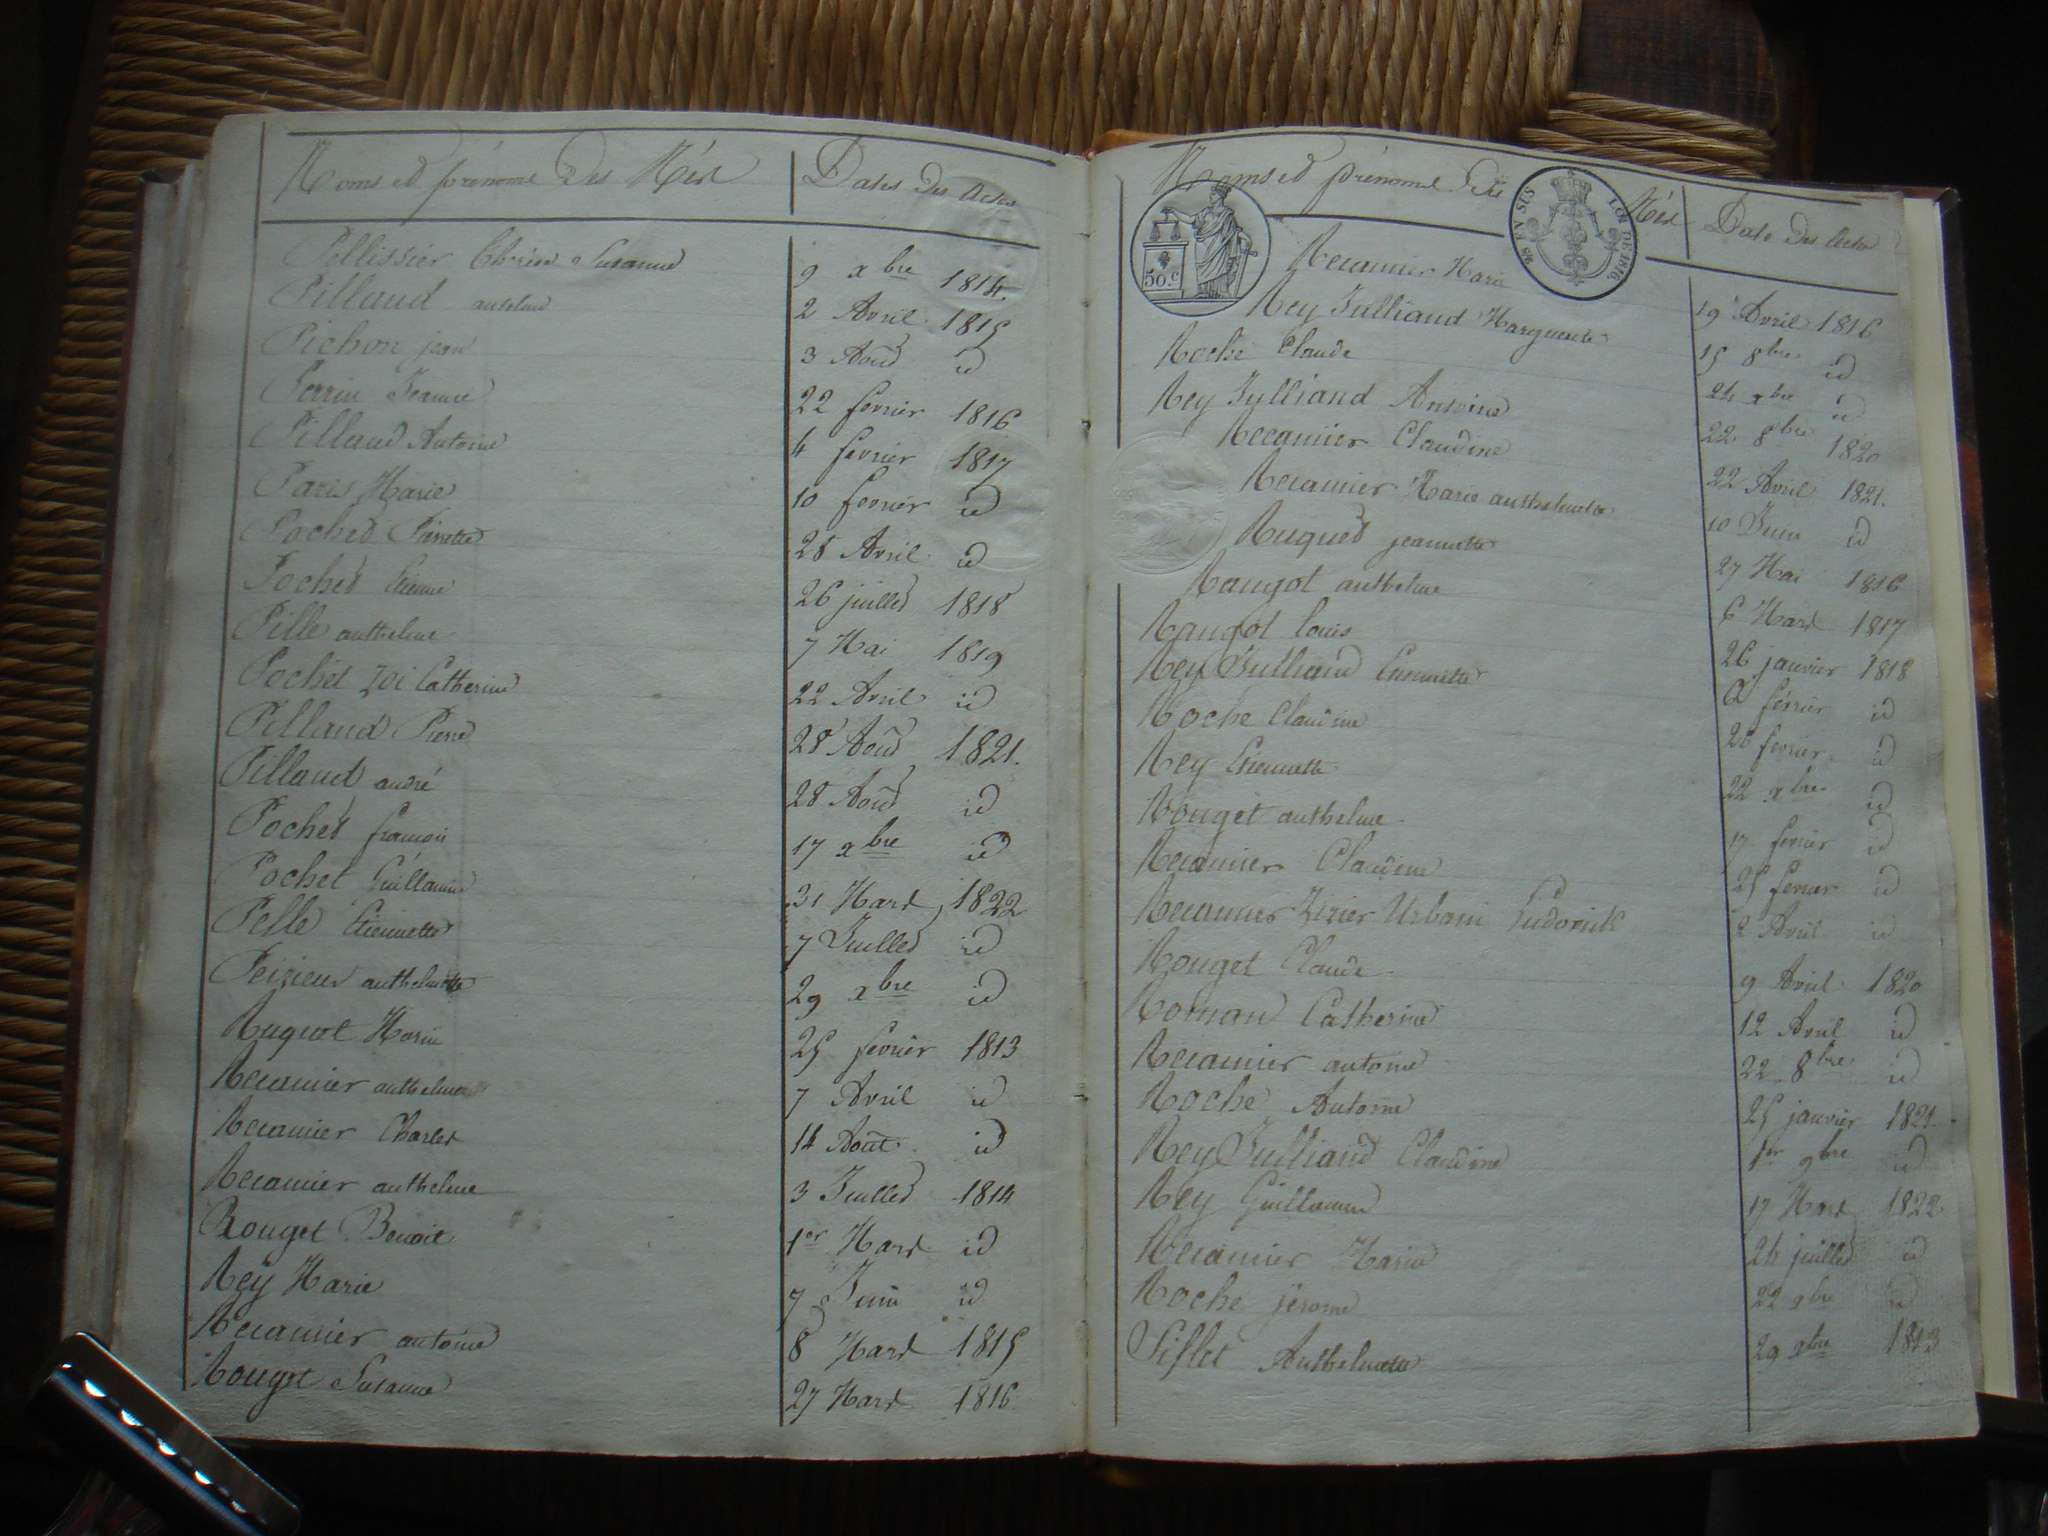 Noms et prénoms Des Nés Dates Des Actes
Pellissier Susanne 9 xbre 1814.
Pillaud anthelme 2 Avril 1815
Pichon jean 3 Aout id
Perrin Jeanne 22 fevrier 1816
Pillaud Antoine 4 fevrier 1817
Paris Marie 10 fevrier id
Pochet Pierrette 28 Avril id
Pochet Etienne 26 juillet 1818
Pille anthelme 7 Mai 1819
Pochet Zoé Catherine 22 Avril id
Pillaud Pierre 28 Aout 1821.
Pillaud andré 28 Aout id
Pochet françois 17 xbre id
Pochet Guillaume 31 Mars 1822
Pelle Etiennette 7 Juillet id
Peizieux anthelmette 29 xbre id
Ruquet Marie 25 fevrier 1813
Recamier anthelme 7 Avril id
Recamier Charles 14 Aout id
Recamier anthelme 3 Juillet 1814
Rouget Benoit 1er Mars id
Rey Marie 7 Juin id
Recamier antoine 8 Mars 1815
Rouget Susanne 27 Mars 1816
Noms et prénoms Des Nés Date Des Actes
50.c
25 EN SUS LOI DE 1816
Recamier Marie 19 Avril 1816
Rey Julliand Marguerite 15 8bre id
Roche Claude 24 xbre id
Rey Julliand Antoine 22 8bre 1820
Recamier Claudine 22 Avril 1821.
Recamier Marie anthelmette 10 Juin id
Ruquet jeannette 27 Mai 1816
Raugot anthelme 6 Mars 1817
Raugot louis 26 janvier 1818
Rey Julliand Etiennette février id
Roche Claudine 26 fevrier id
Rey Etiennette 22 xbre id
Rouget anthelme 17 fevrier id
Recamier Claudine 25 fevrier id
Recamier Urbain Ludovick 2 Avril id
Rouget Claude 9 Avril 1820
Roman Catherine 12 Avril id
Recamier antoine 22 8bre id
Roche Antoine 25 janvier 1821.
Rey Julliand Claudine 1er 9bre id
Rey Guillaume 17 Mars 1822
Recamier Marie 24 juillet id
Roche jerome 22 xbre id
Siflet Anthelmette 29 xbre 1813